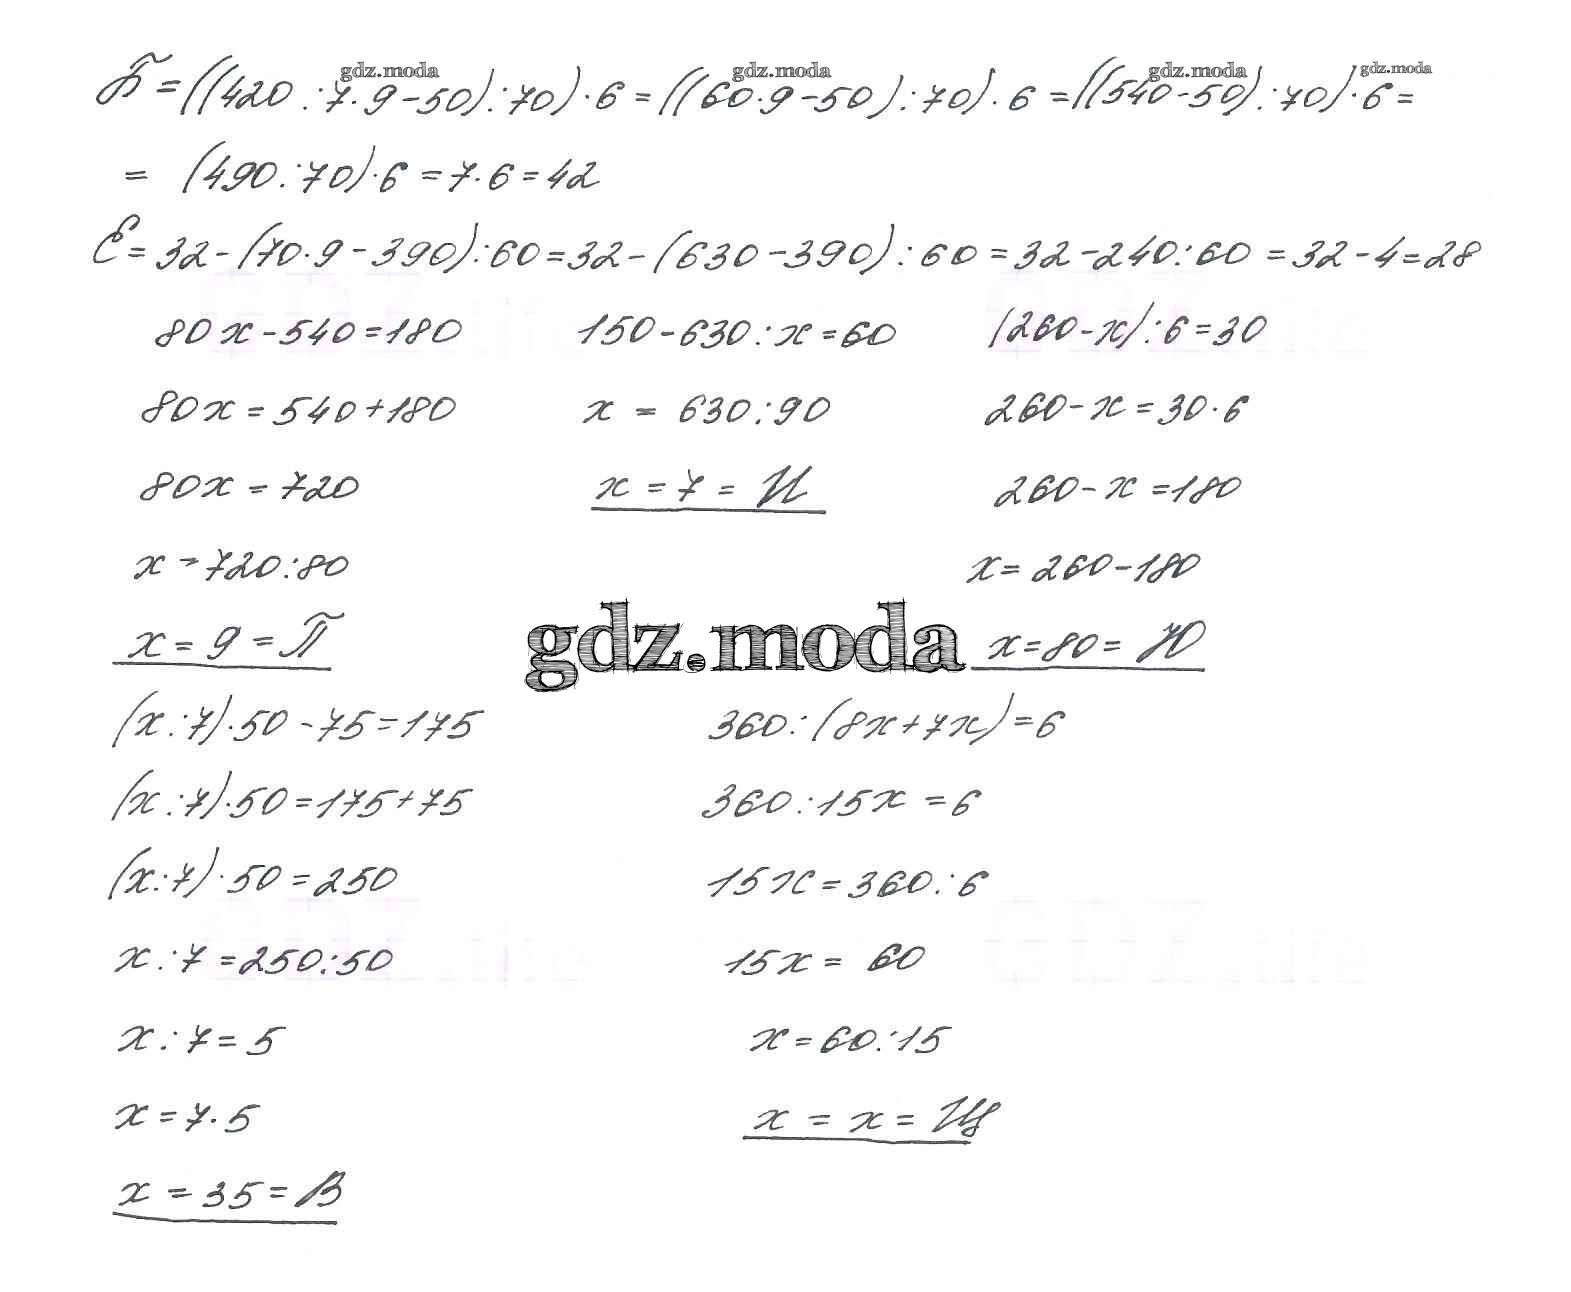 Б = ((420 : 7 · 9 - 50) : 70) · 6 = ((60 · 9 - 50) : 70) · 6 = ((540 - 50) : 70) · 6 =
gdz.moda gdz.moda gdz.moda gdz.moda
= (490 : 70) · 6 = 7 · 6 = 42
Е = 32 - (70 · 9 - 390) : 60 = 32 - (630 - 390) : 60 = 32 - 240 : 60 = 32 - 4 = 28
80x - 540 = 180
80x = 540 + 180
80x = 720
x = 720 : 80
x = 9 = П
150 - 630 : x = 60
x = 630 : 90
x = 7 = И
(260 - x) : 6 = 30
260 - x = 30 · 6
260 - x = 180
x = 260 - 180
x = 80 = Ю
gdz.moda
(x : 7) · 50 - 75 = 175
(x : 7) · 50 = 175 + 75
(x : 7) · 50 = 250
x : 7 = 250 : 50
x : 7 = 5
x = 7 · 5
x = 35 = В
360 : (8x + 7x) = 6
360 : 15x = 6
15x = 360 : 6
15x = 60
x = 60 : 15
x = x = Щ